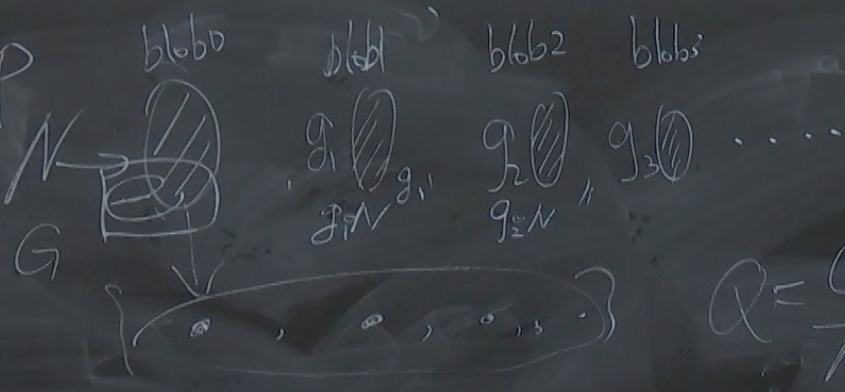 blob0 blob1 blob2 blob3
P
N → g₁ g₁' g₂ g₃ .....
g₁N g₂N
G
{ , , , }
Q =